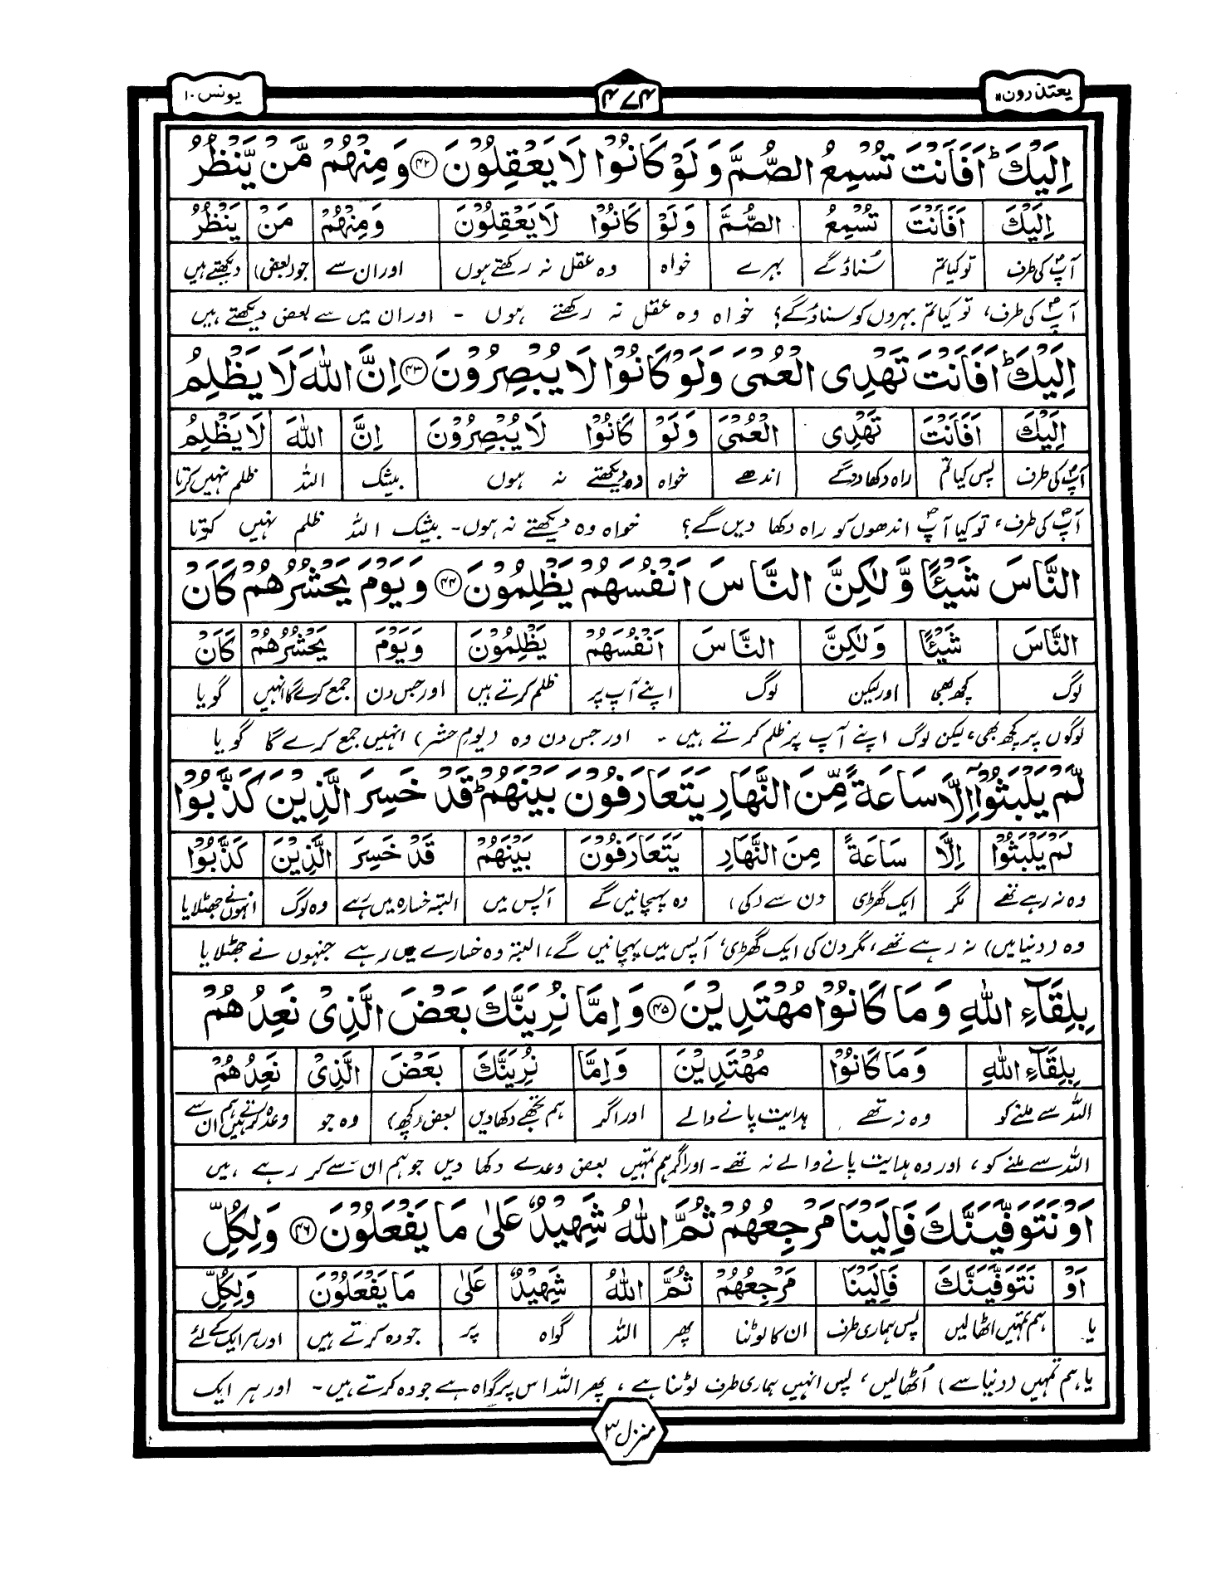 یعتذرون ۱۱
۴۷۴
یونس ۱۰
اِلَیْكَ ؕ اَفَاَنْتَ تُسْمِعُ الصُّمَّ وَ لَوْ كَانُوْا لَا یَعْقِلُوْنَ ۝۴۲ وَ مِنْهُمْ مَّنْ یَّنْظُرُ
اِلَیْكَ اَفَاَنْتَ تُسْمِعُ الصُّمَّ وَ لَوْ كَانُوْا لَا یَعْقِلُوْنَ وَ مِنْهُمْ مَنْ یَنْظُرُ
آپؐ کی طرف تو کیا تم سُناؤ گے بہرے خواہ وہ عقل نہ رکھتے ہوں اور ان سے جو (بعض) دیکھتے ہیں
آپؐ کی طرف، تو کیا تم بہروں کو سناؤ گے؟ خواہ وہ عقل نہ رکھتے ہوں - اور ان میں سے بعض دیکھتے ہیں
اِلَیْكَ ؕ اَفَاَنْتَ تَهْدِی الْعُمْیَ وَ لَوْ كَانُوْا لَا یُبْصِرُوْنَ ۝۴۳ اِنَّ اللّٰهَ لَا یَظْلِمُ
اِلَیْكَ اَفَاَنْتَ تَهْدِی الْعُمْیَ وَ لَوْ كَانُوْا لَا یُبْصِرُوْنَ اِنَّ اللّٰهَ لَا یَظْلِمُ
آپؐ کی طرف پس کیا تم راہ دکھا دو گے اندھے خواہ وہ دیکھتے نہ ہوں بیشک اللہ ظلم نہیں کرتا
آپؐ کی طرف، تو کیا آپؐ اندھوں کو راہ دکھا دیں گے؟ خواہ وہ دیکھتے نہ ہوں - بیشک اللہ ظلم نہیں کرتا
النَّاسَ شَیْـًٔا وَّ لٰكِنَّ النَّاسَ اَنْفُسَهُمْ یَظْلِمُوْنَ ۝۴۴ وَ یَوْمَ یَحْشُرُهُمْ كَاَنْ
النَّاسَ شَیْـًٔا وَ لٰكِنَّ النَّاسَ اَنْفُسَهُمْ یَظْلِمُوْنَ وَ یَوْمَ یَحْشُرُهُمْ كَاَنْ
لوگ کچھ بھی اور لیکن لوگ اپنے آپ پر ظلم کرتے ہیں اور جس دن جمع کرے گا انہیں گویا
لوگوں پر کچھ بھی، لیکن لوگ اپنے آپ پر ظلم کرتے ہیں - اور جس دن وہ (یومِ حشر) انہیں جمع کرے گا گویا
لَّمْ یَلْبَثُوْۤا اِلَّا سَاعَةً مِّنَ النَّهَارِ یَتَعَارَفُوْنَ بَیْنَهُمْ ؕ قَدْ خَسِرَ الَّذِیْنَ كَذَّبُوْا
لَمْ یَلْبَثُوْا اِلَّا سَاعَةً مِنَ النَّهَارِ یَتَعَارَفُوْنَ بَیْنَهُمْ قَدْ خَسِرَ الَّذِیْنَ كَذَّبُوْا
وہ نہ رہے تھے مگر ایک گھڑی دن سے (کی) وہ پہچانیں گے آپس میں البتہ خسارہ میں رہے وہ لوگ انہوں نے جھٹلایا
وہ (دنیا میں) نہ رہے تھے، مگر دن کی ایک گھڑی، آپس میں پہچانیں گے، البتہ وہ خسارے میں رہے جنہوں نے جھٹلایا
بِلِقَآءِ اللّٰهِ وَ مَا كَانُوْا مُهْتَدِیْنَ ۝۴۵ وَ اِمَّا نُرِیَنَّكَ بَعْضَ الَّذِیْ نَعِدُهُمْ
بِلِقَآءِ اللّٰهِ وَ مَا كَانُوْا مُهْتَدِیْنَ وَ اِمَّا نُرِیَنَّكَ بَعْضَ الَّذِیْ نَعِدُهُمْ
اللہ سے ملنے کو وہ نہ تھے ہدایت پانے والے اور اگر ہم تجھے دکھا دیں بعض (کچھ) وہ جو وعدہ کرتے ہیں ہم ان سے
اللہ سے ملنے کو، اور وہ ہدایت پانے والے نہ تھے - اور اگر ہم تمہیں بعض وعدے دکھا دیں جو ہم ان سے کر رہے ہیں
اَوْ نَتَوَفَّیَنَّكَ فَاِلَیْنَا مَرْجِعُهُمْ ثُمَّ اللّٰهُ شَهِیْدٌ عَلٰى مَا یَفْعَلُوْنَ ۝۴۶ وَ لِكُلِّ
اَوْ نَتَوَفَّیَنَّكَ فَاِلَیْنَا مَرْجِعُهُمْ ثُمَّ اللّٰهُ شَهِیْدٌ عَلٰى مَا یَفْعَلُوْنَ وَ لِكُلِّ
یا ہم تمہیں اٹھا لیں پس ہماری طرف ان کا لوٹنا پھر اللہ گواہ پر جو وہ کرتے ہیں اور ہر ایک کے لئے
یا ہم تمہیں (دنیا سے) اُٹھا لیں، پس انہیں ہماری طرف لوٹنا ہے، پھر اللہ اس پر گواہ ہے جو وہ کرتے ہیں - اور ہر ایک
منزل ۳